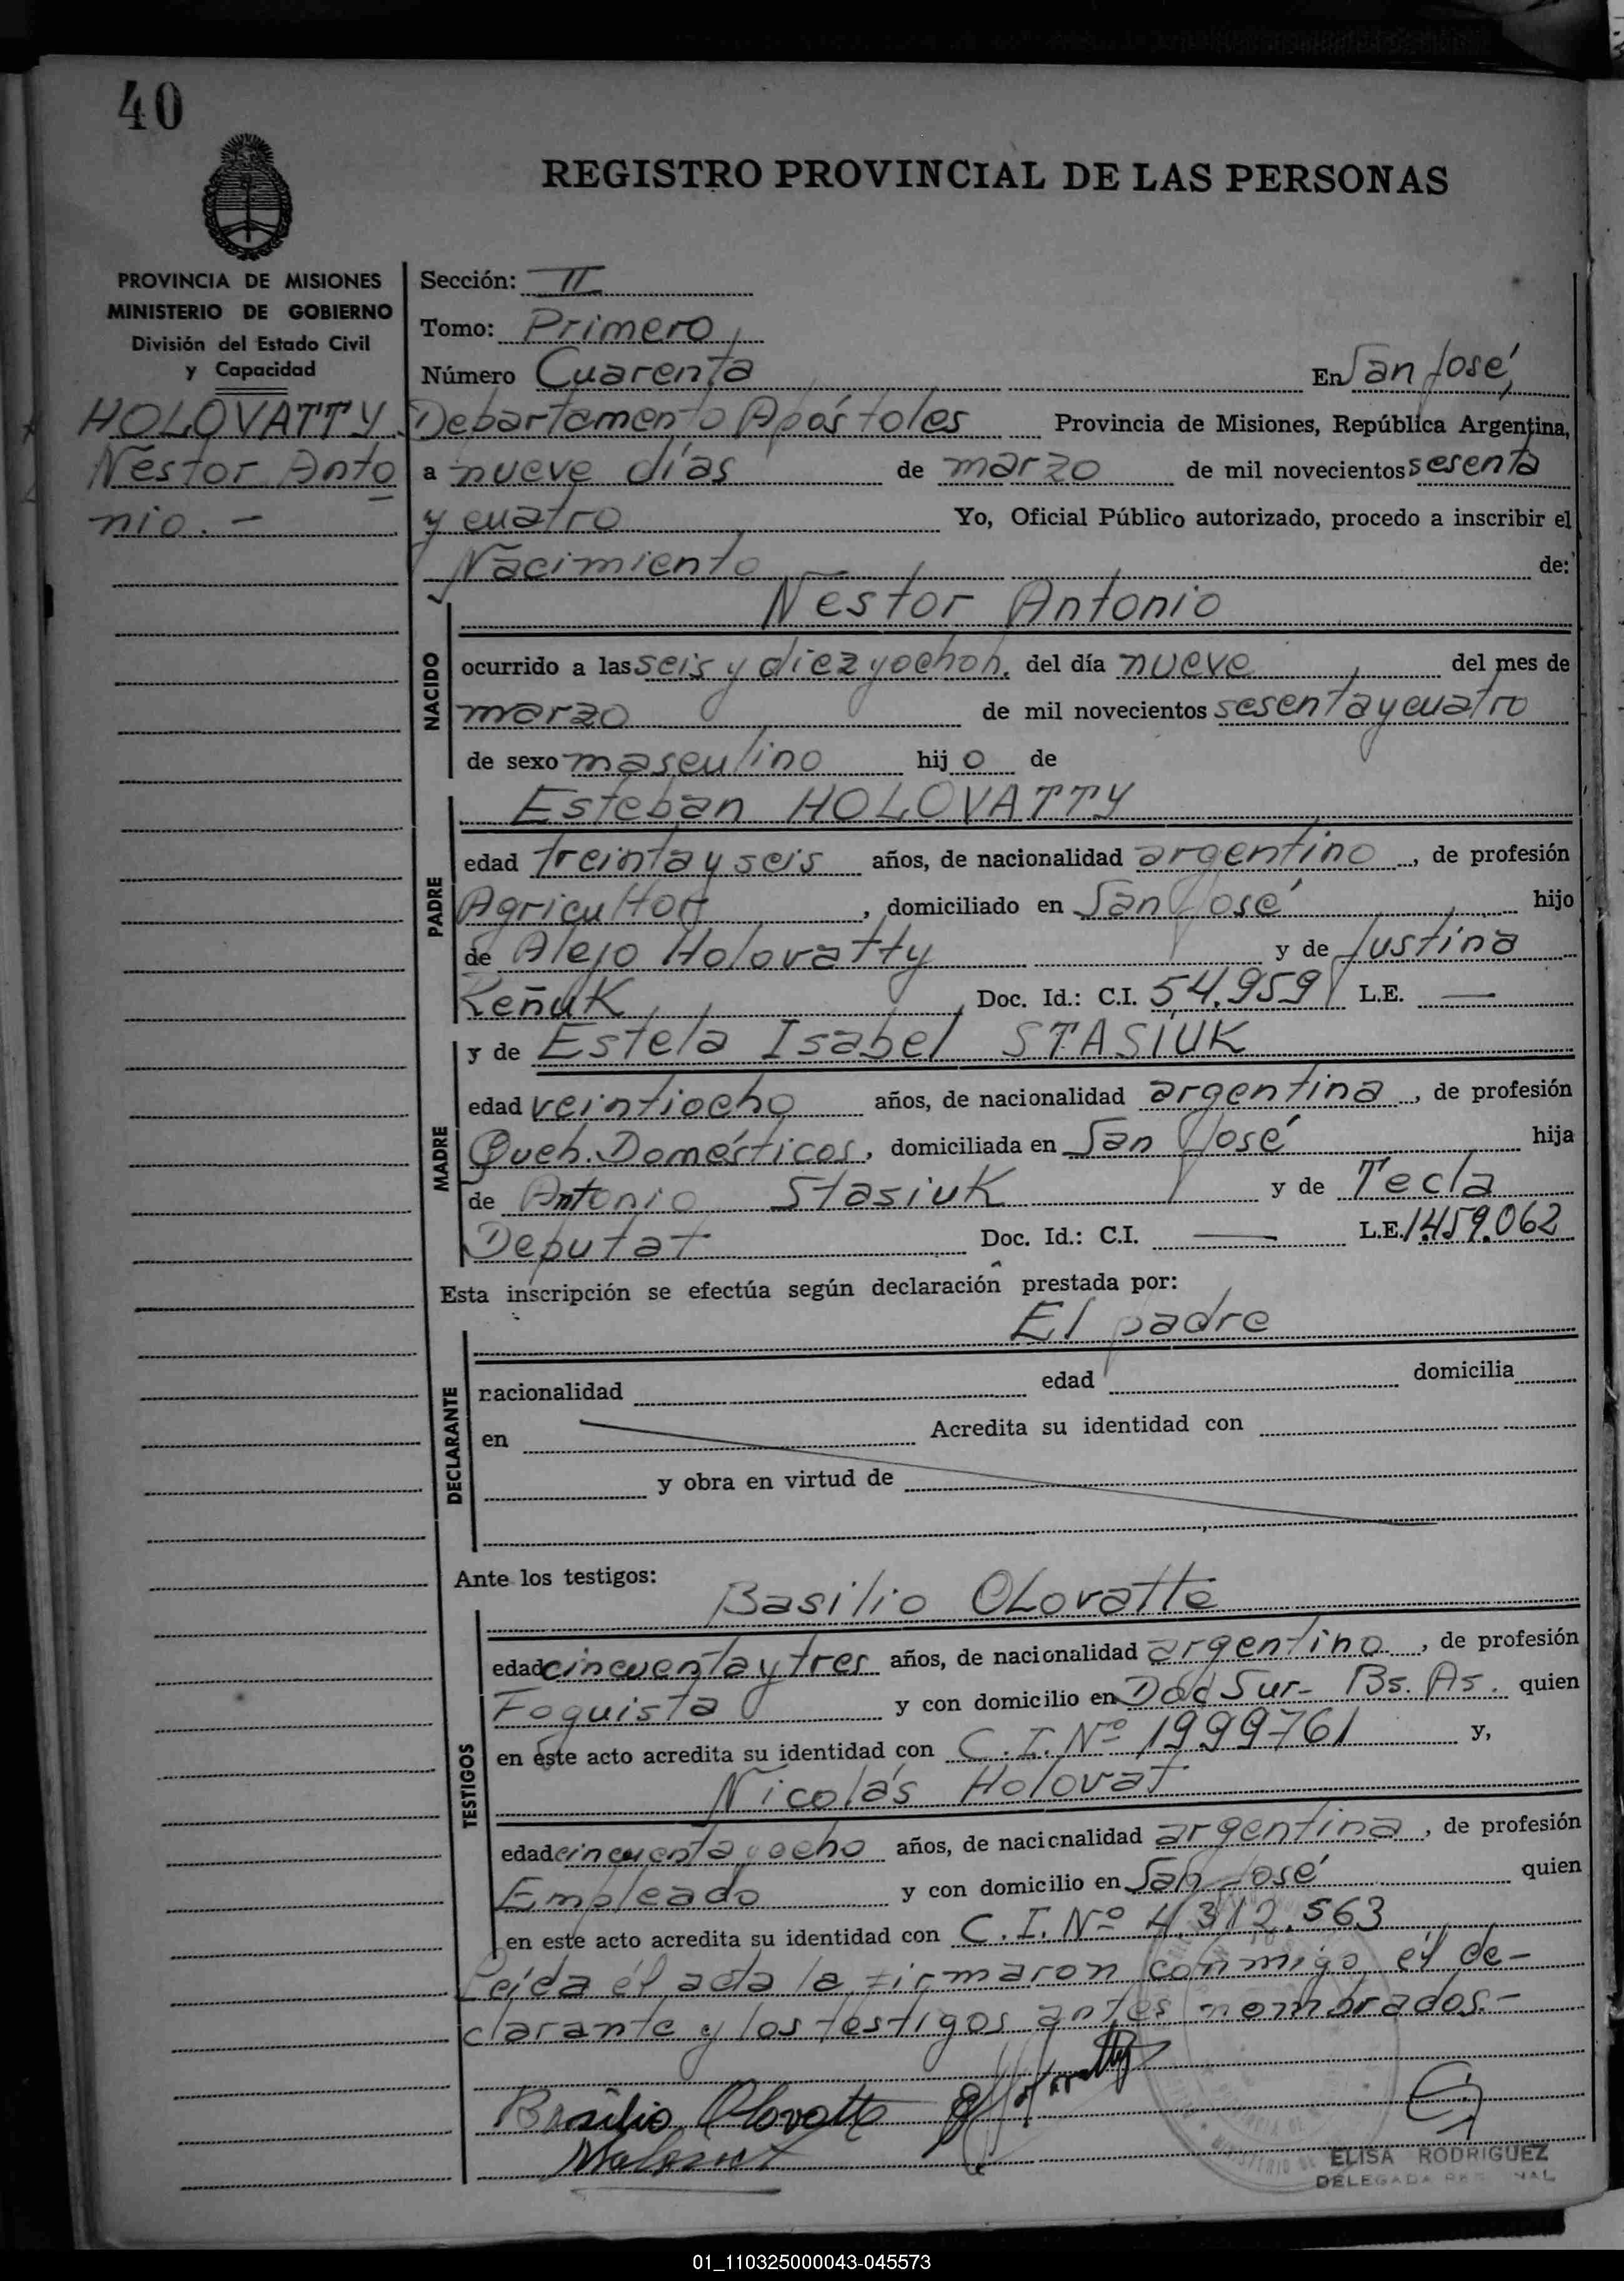 40
REGISTRO PROVINCIAL DE LAS PERSONAS
PROVINCIA DE MISIONES
MINISTERIO DE GOBIERNO
División del Estado Civil
y Capacidad
HOLOVATTY
Nestor Anto
nio. -
Sección: II
Tomo: Primero
Número Cuarenta En San José,
Departamento Apóstoles Provincia de Misiones, República Argentina,
a nueve días de marzo de mil novecientos sesenta
y cuatro Yo, Oficial Público autorizado, procedo a inscribir el
Nacimiento de:
Nestor Antonio
NACIDO
ocurrido a las seis y diez y ocho h. del día nueve del mes de
marzo de mil novecientos sesenta y cuatro
de sexo masculino hijo de
Esteban HOLOVATTY
PADRE
edad treinta y seis años, de nacionalidad argentino, de profesión
Agricultor, domiciliado en San José hijo
de Alejo Holovatty y de Justina
Reñuk Doc. Id.: C.I. 54.959 L.E. —
y de Estela Isabel STASIUK
MADRE
edad veintiocho años, de nacionalidad argentina, de profesión
Queh. Domésticos, domiciliada en San José hija
de Antonio Stasiuk y de Tecla
Deputat Doc. Id.: C.I. — L.E. 1.459.062
Esta inscripción se efectúa según declaración prestada por:
El padre
DECLARANTE
nacionalidad edad domicilia
en Acredita su identidad con
y obra en virtud de
Ante los testigos:
Basilio OLovatte
TESTIGOS
edad cincuenta y tres años, de nacionalidad argentino, de profesión
Foquista y con domicilio en Dod Sur- Bs. As. quien
en este acto acredita su identidad con C.I. Nº 1999761 y,
Nicolás Holovat
edad cincuenta y ocho años, de nacionalidad argentina, de profesión
Empleado y con domicilio en San José quien
en este acto acredita su identidad con C.I. Nº 4.312.563
Leída el acta la firmaron conmigo el de-
clarante y los testigos antes nombrados.-
Basilio Olovatte
ELISA RODRIGUEZ
DELEGADA
01_110325000043-045573